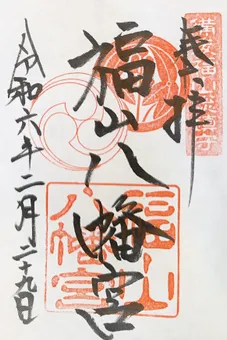 奉拝
福山八幡宮
令和六年二月二十九日
福山
八幡宮